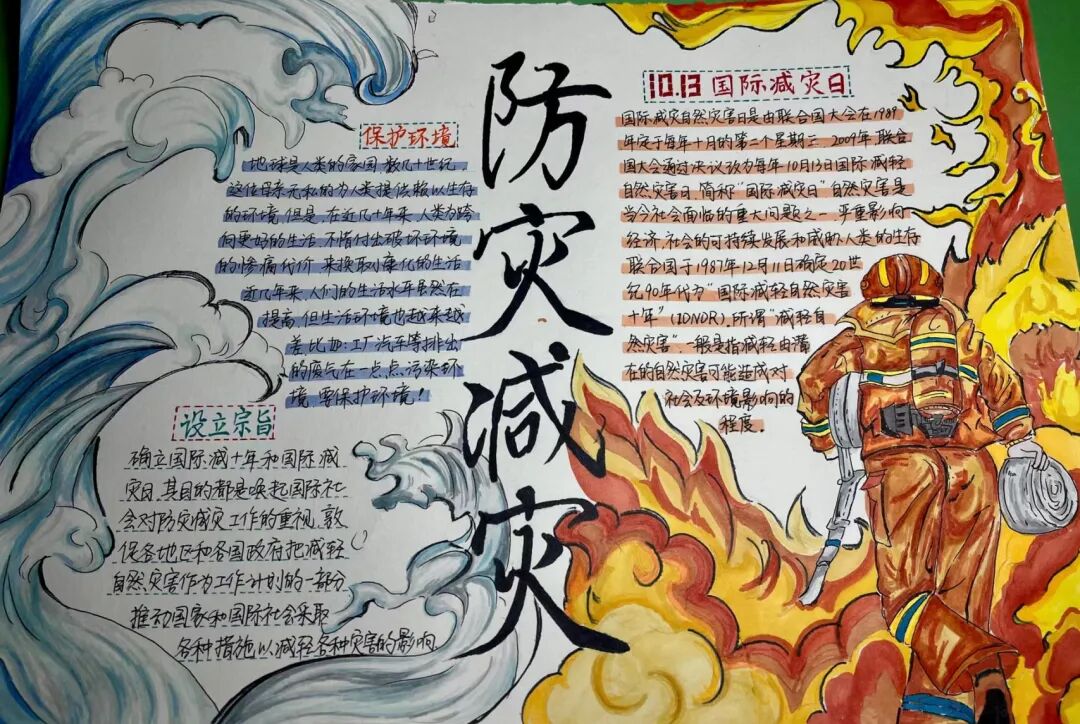 防灾减灾
保护环境
地球是人类的家园,数几十世纪,
这位母亲无私的为人类提供赖以生存
的环境,但是,在近几十年来,人类为跨
向更好的生活,不惜付出破坏环境
的惨痛代价,来换取的生活
近几年来,人们的生活水平虽然在
提高,但生活环境也越来越
差,比如:工厂汽车等排出
的废气在一点点污染环
境,要保护环境!
设立宗旨
确立国际减十年和国际减
灾日,其目的都是唤起国际社
会对防灾减灾工作的重视,敦
促各地区和各国政府把减轻
自然灾害作为工作计划的一部分
推动国家和国际社会采取
各种措施以减轻各种灾害的影响
10.13国际减灾日
国际减灾自然灾害日是由联合国大会在1989
年定于每年十月的第二个星期三,2009年,联合
国大会通过决议改为每年10月13日国际减轻
自然灾害日,简称"国际减灾日"自然灾害是
当今社会面临的重大问题之一,严重影响
经济,社会的可持续发展和威胁人类的生存
联合国于1987年12月11日确定20世
纪90年代为"国际减轻自然灾害
十年"(IDNDR),所谓"减轻自
然灾害",一般是指减轻由潜
在的自然灾害可能造成对
社会及环境影响的
程度。